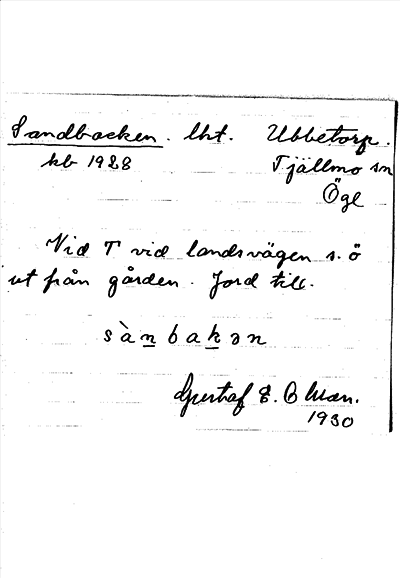 Sandbacken. lht. Ubbetorp.
kb 1928 Tjällmo sn
Ögl
Vid T vid landsvägen s. ö
ut från gården. Jord till.
sànbakən
Gustaf E. Olsson.
1930